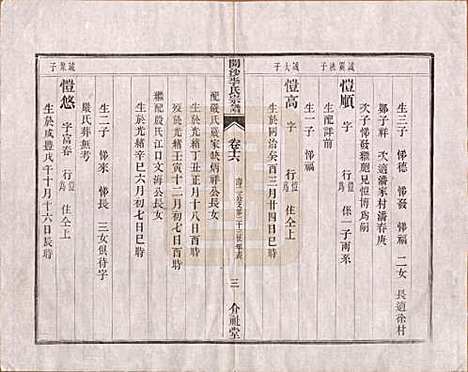 生三子 悌德 悌發 悌福 二女 長適徐村
鄭子祥 次適潘家村潘春庚
次子悌發繼胞兄愷博爲嗣
誠鬣洪子
愷順 字 行 爲 係一子兩祧
生配詳前
誠大子
愷高 字 行爲 住仝上
生一子 悌福
生於同治癸酉三月廿四日巳時
配嚴氏嚴家缺炳祥公長女
生於光緒丁丑正月十八日酉時
歿於光緒壬寅十二月初七日酉時
繼配殷氏江口文海公長女
生於光緒辛巳六月初七日巳時
開沙李氏宗譜
卷六
三
介祉堂
生二子 悌來 悌長 三女俱待字
嚴氏葬無考
誠眾子
愷悠 字富春 行爲 住仝上
生於咸豐戊午十月十六日辰時